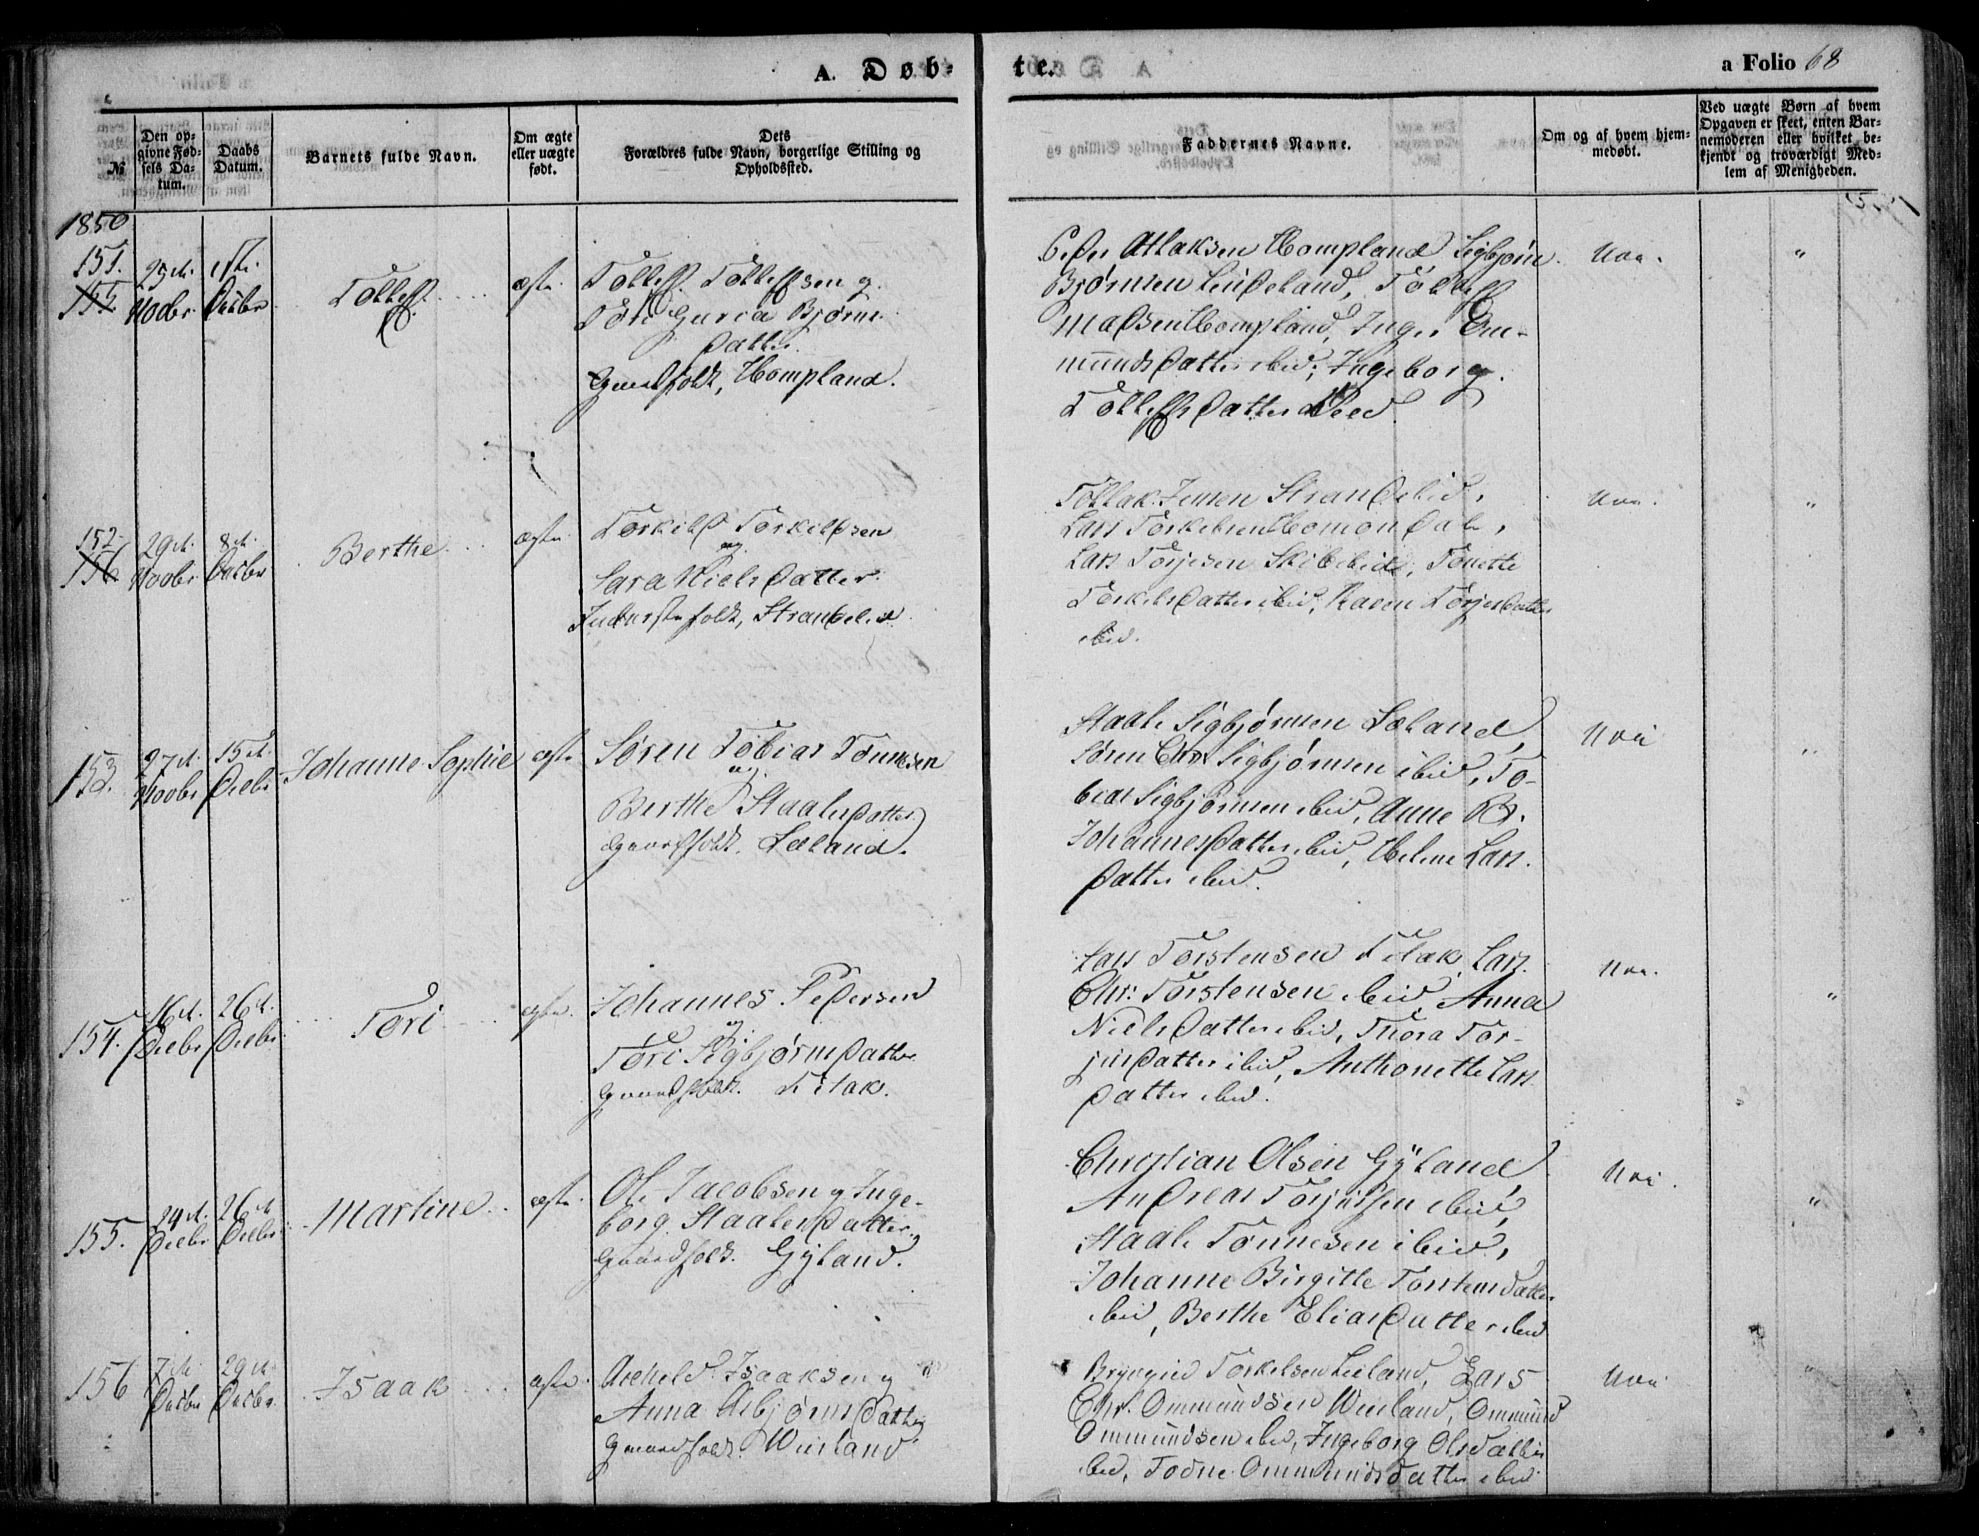 A. Døb-
te.
a Folio 68
№
Den op-
givne Fød-
sels Da-
tum.
Daabs
Datum.
Barnets fulde Navn.
Om ægte
eller uægte
født.
Dets
Forældres fulde Navn, borgerlige Stilling og
Opholdssted.
Faddernes Navne.
Om og af hvem hjem-
medøbt.
Ved uægte Børn af hvem
Opgaven er skeet, enten Bar-
nemoderen eller hvilket be-
kjendt og troværdigt Med-
lem af Menigheden.
1850
151.
155
25
Novbr
1ste
Decbr
Tolleff
ægte
Tolleff Tolleffsen og
Guria Bjørns
datter
Gaardfolk, Hompland.
Peder Atlaksen Hompland Sigbjørn
Bjørnsen Leideland, Tolleff
Madsen Hompland, Inger Om-
mundsdatter ibid, Ingeborg
Tolleffsdatter
Nei.
"
152
156
29de
Novbr
8de
Decbr
Berthe
ægte
Torkild Torkildsen
og
Sara Nielsdatter
Inderstefolk, Strandelid
Tollak Jensen Strandelid,
Lars Torkelsen Homondal,
Lars Torjesen Skibelid, Tonette
Torkelsdatter ibid, Karen Torjesdatter
ibid.
Nei.
"
153.
27de
Novbr
15de
Decbr
Johanne Sophie
ægte
Søren Tobias Tønnesen
og
Berthe Staalesdatter
Gaardfolk. Læland.
Staale Sigbjørnsen Læland,
Søren Chr. Sigbjørnsen ibid, To-
bias Sigbjørnsen ibid, Anne B.
Johannesdatter ibid, Helene Lars-
datter ibid.
Nei
"
154.
16de
Decbr
26de
Decbr
Tori
ægte
Johannes Pedersen
og
Tori Sigbjørnsdatter
Gaardfolk. Titak.
Lars Torstensen Titak, Lars
Chr. Torstensen ibid, Anna
Nielsdatter ibid, Thora Tor-
jusdatter ibid, Anthonette Lars
datter ibid.
Nei.
"
155.
24de
Decbr
26de
Decbr
Martine
ægte
Ole Jacobsen og Inge-
borg Staalesdatter,
Gaardfolk. Gyland.
Christian Olsen Gyland,
Andreas Torjussen ibid,
Staale Tønnesen ibid,
Johanne Birgitte Torstensdatter
ibid, Berthe Eliasdatter ibid
Nei.
"
156
7de
Decbr
29de
Decbr
Isaak
ægte
Aschild Isaaksen og
Anna Asbjørnsdatter
Gaardfolk Weisland
Brynild Torkelsen Leiland, Lars
Chr. Ommundsen Weisland, Ommund
Ommundsen ibid, Ingeborg Olsdatter
ibid, Todne Ommundsdatter ibid
Nei
"